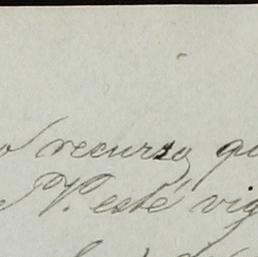 o recurso qu
V. esté vig